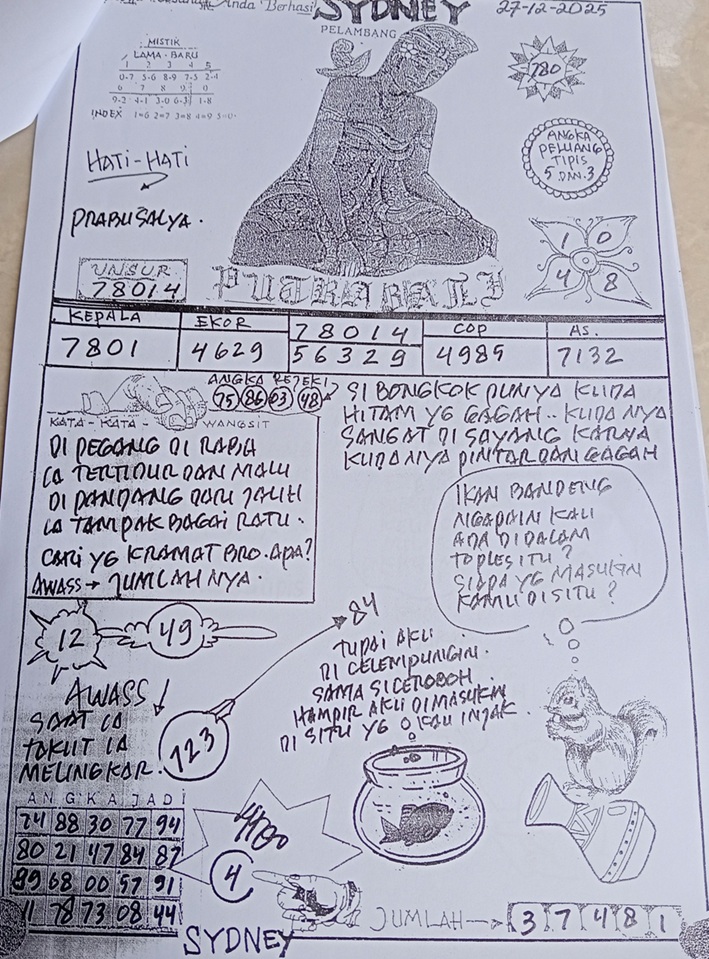 Anda Berhasi
SYDNEY
27-12-2025
PELAMBANG
MISTIK
LAMA - BARU
1 2 3 4 5
0-7 5-6 8-9 7-5 2-4
6 7 8 9 0
9-2 4-1 3-0 6-3 1-8
INDEX 1=6 2=7 3=8 4=9 5=0
780
ANGKA
PELUANG
TIPIS
5 DAN 3
HATI-HATI
PRABU SALYA.
1 0
4 8
UNSUR
78014
PUTRA BALI
KEPALA EKOR 78014 COP AS.
7801 4629 56329 4989 7132
ANGKA REJEKI
75 86 03 48
KATA - KATA - WANGSIT
SI BONGKOK PUNYA KUDA
HITAM YG GAGAH.. KUDA NYA
SANGAT DI SAYANG KARNA
KUDANYA PINTAR DAN GAGAH
DI PEGANG DI RABA
IA TERTIDUR DAN MALU
DI PANDANG DARI JAUH
IA TAMPAK BAGAI RATU.
CARI YG KRAMAT BRO. APA?
AWASS → JUMLAH NYA.
IKAN BANDENG
NGAPAIN KAU
ADA DIDALAM
TOPLES ITU?
SIAPA YG MASUKIN
KAMU DISITU?
12 49
84
TUPAI AKU
DI CELEMPUNGIN.
SAMA SI CEROBOH.
HAMPIR AKU DIMASUKIN
DI SITU YG KAU INJAK.
AWASS!
SAAT IA
TAKUT IA
MELINGKAR.
723
ANGKA JADI
74 88 30 77 94
80 21 47 84 87
89 68 00 57 91
11 78 73 08 44
4
JUMLAH → 3 7 4 8 1
SYDNEY